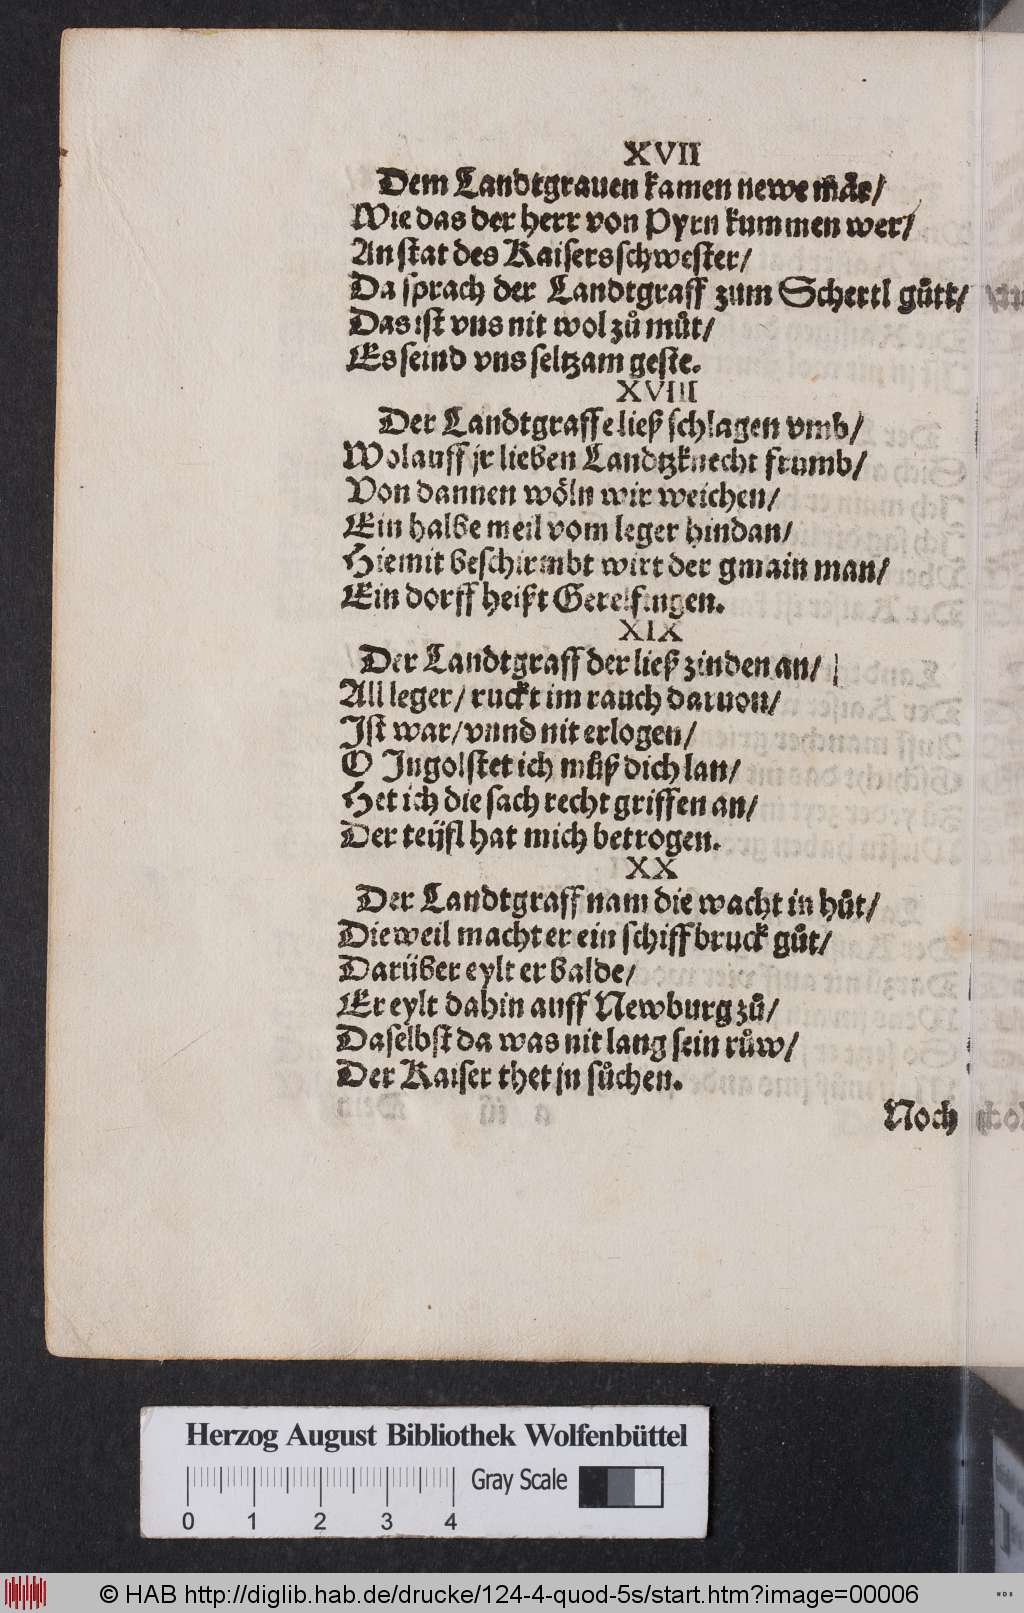 XVII
Dem Landtgrauen kamen newe mår/
Wie das der herr von Pyrn kummen wer/
An stat des Kaisers schwester/
Da sprach der Landtgraff zum Schertl gůtt/
Das ist vns nit wol zů můt/
Es seind vns seltzam geste.
XVIII
Der Landtgraffe ließ schlagen vmb/
Wolauff jr lieben Landtzknecht frumb/
Von dannen wöln wir weichen/
Ein halbe meil vom leger hindan/
Hiemit beschirmbt wirt der gmain man/
Ein dorff heißt Gerelfingen.
XIX
Der Landtgraff der ließ zinden an/
All leger/ ruckt im rauch daruon/
Ist war/ vnnd nit erlogen/
O Ingolstet ich můß dich lan/
Het ich die sach recht griffen an/
Der teÿfl hat mich betrogen.
XX
Der Landtgraff nam die wacht in hůt/
Dieweil macht er ein schiffbruck gůt/
Darüber eylt er balde/
Er eylt dahin auff Newburg zů/
Daselbst da was nit lang sein růw/
Der Kaiser thet jn sůchen.
Noch
Herzog August Bibliothek Wolfenbüttel
Gray Scale
0 1 2 3 4
© HAB http://diglib.hab.de/drucke/124-4-quod-5s/start.htm?image=00006